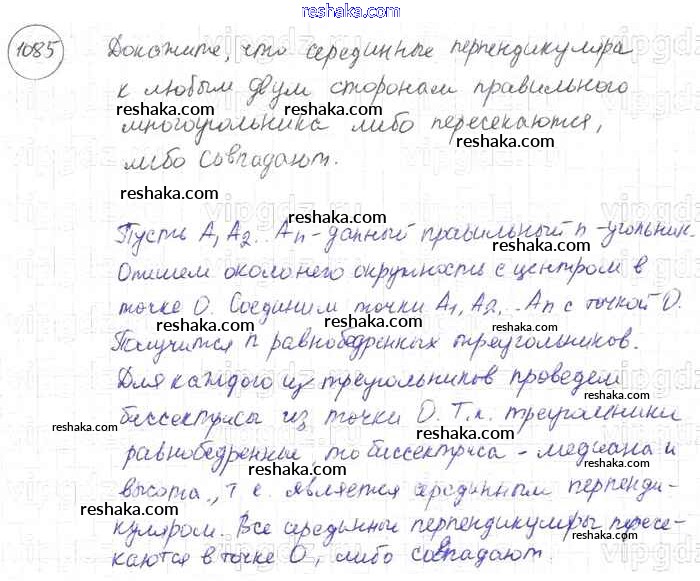 reshaka.com
1085 Докажите, что серединные перпендикуляра
к любым двум сторонам правильного
reshaka.com reshaka.com
многоугольника либо пересекаются,
reshaka.com
либо совпадают.
reshaka.com
Пусть A₁A₂...Aₙ - данный правильный n-угольник.
reshaka.com reshaka.com
Опишем около него окружность с центром в
точке O. Соединим точки A₁, A₂, ... Aₙ с точкой O.
reshaka.com reshaka.com
Получится n равнобедренных треугольников.
Для каждого из треугольников проведем
reshaka.com reshaka.com
биссектрисы из точки O. Т.к. треугольники
reshaka.com
равнобедренные, то биссектриса - медиана и
reshaka.com reshaka.com
высота, т.е. является серединным перпенди-
куляром. Все серединные перпендикуляры пересе-
reshaka.com reshaka.com
каются в точке O, либо совпадают.